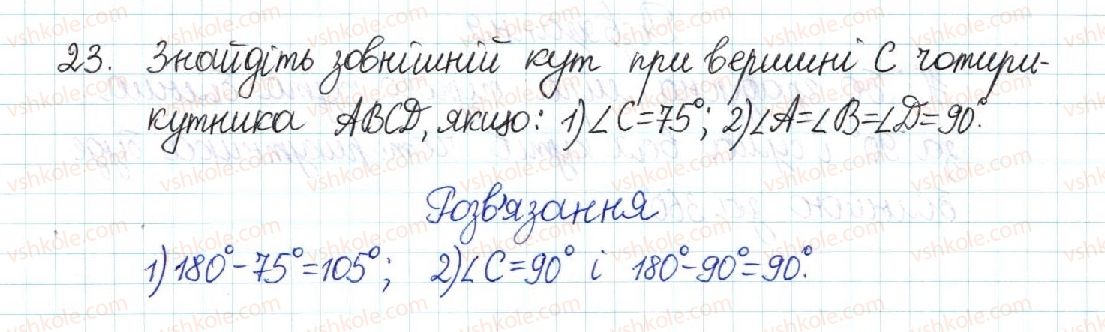 23. Знайдіть зовнішній кут при вершині С чотири-
кутника ABCD, якщо: 1) ∠C=75°; 2) ∠A=∠B=∠D=90°.
Розв'язання
1) 180°-75°=105°; 2) ∠C=90° і 180°-90°=90°.